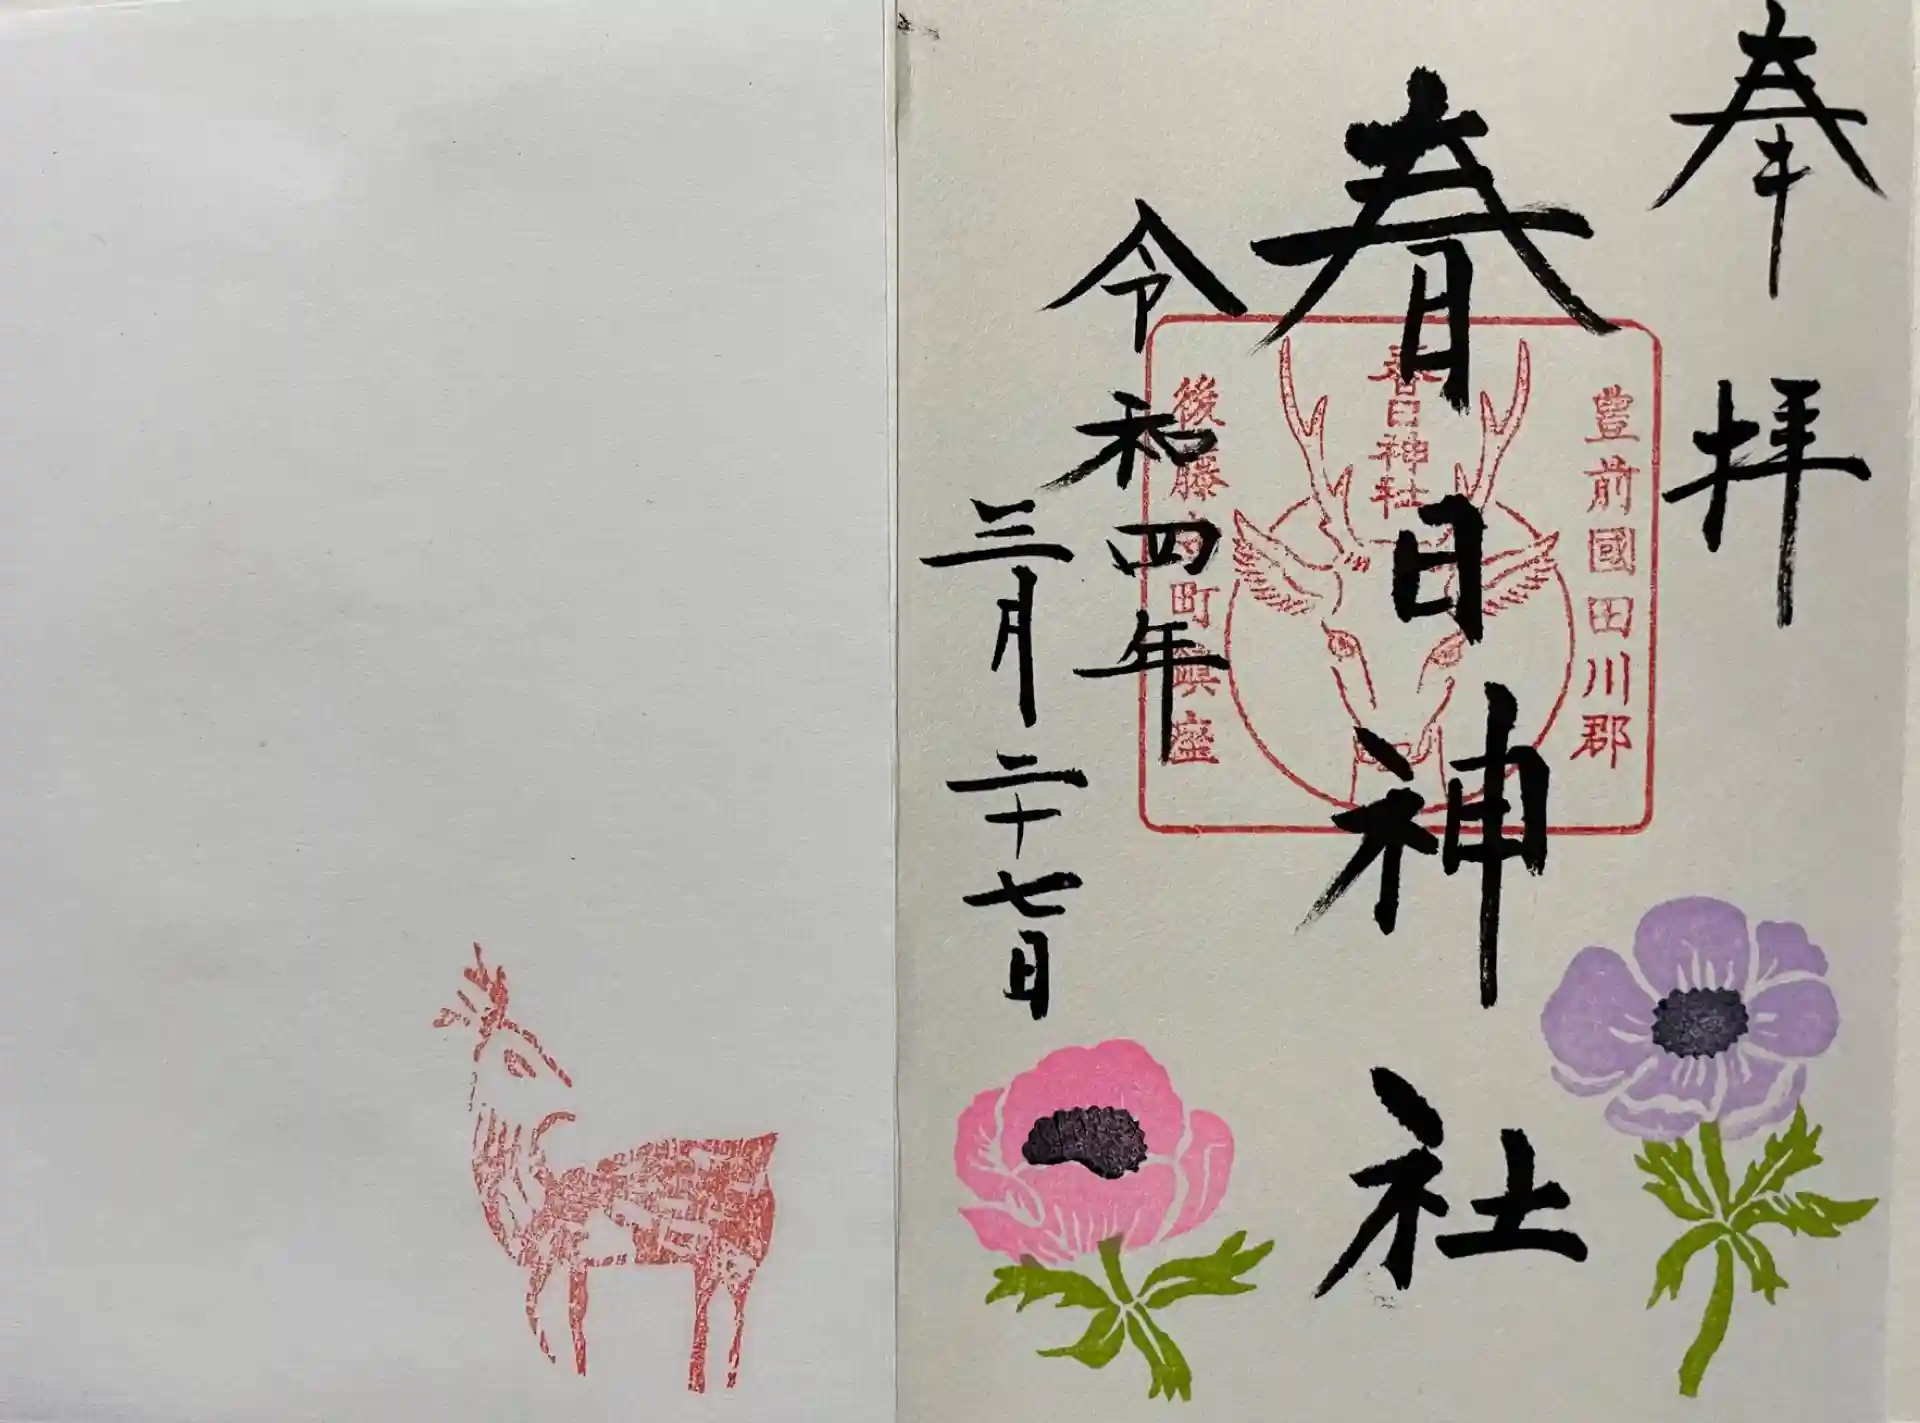 奉拝
春日神社
令和四年
三月二十七日
豊前國田川郡
春日神社
後藤寺町鎮座